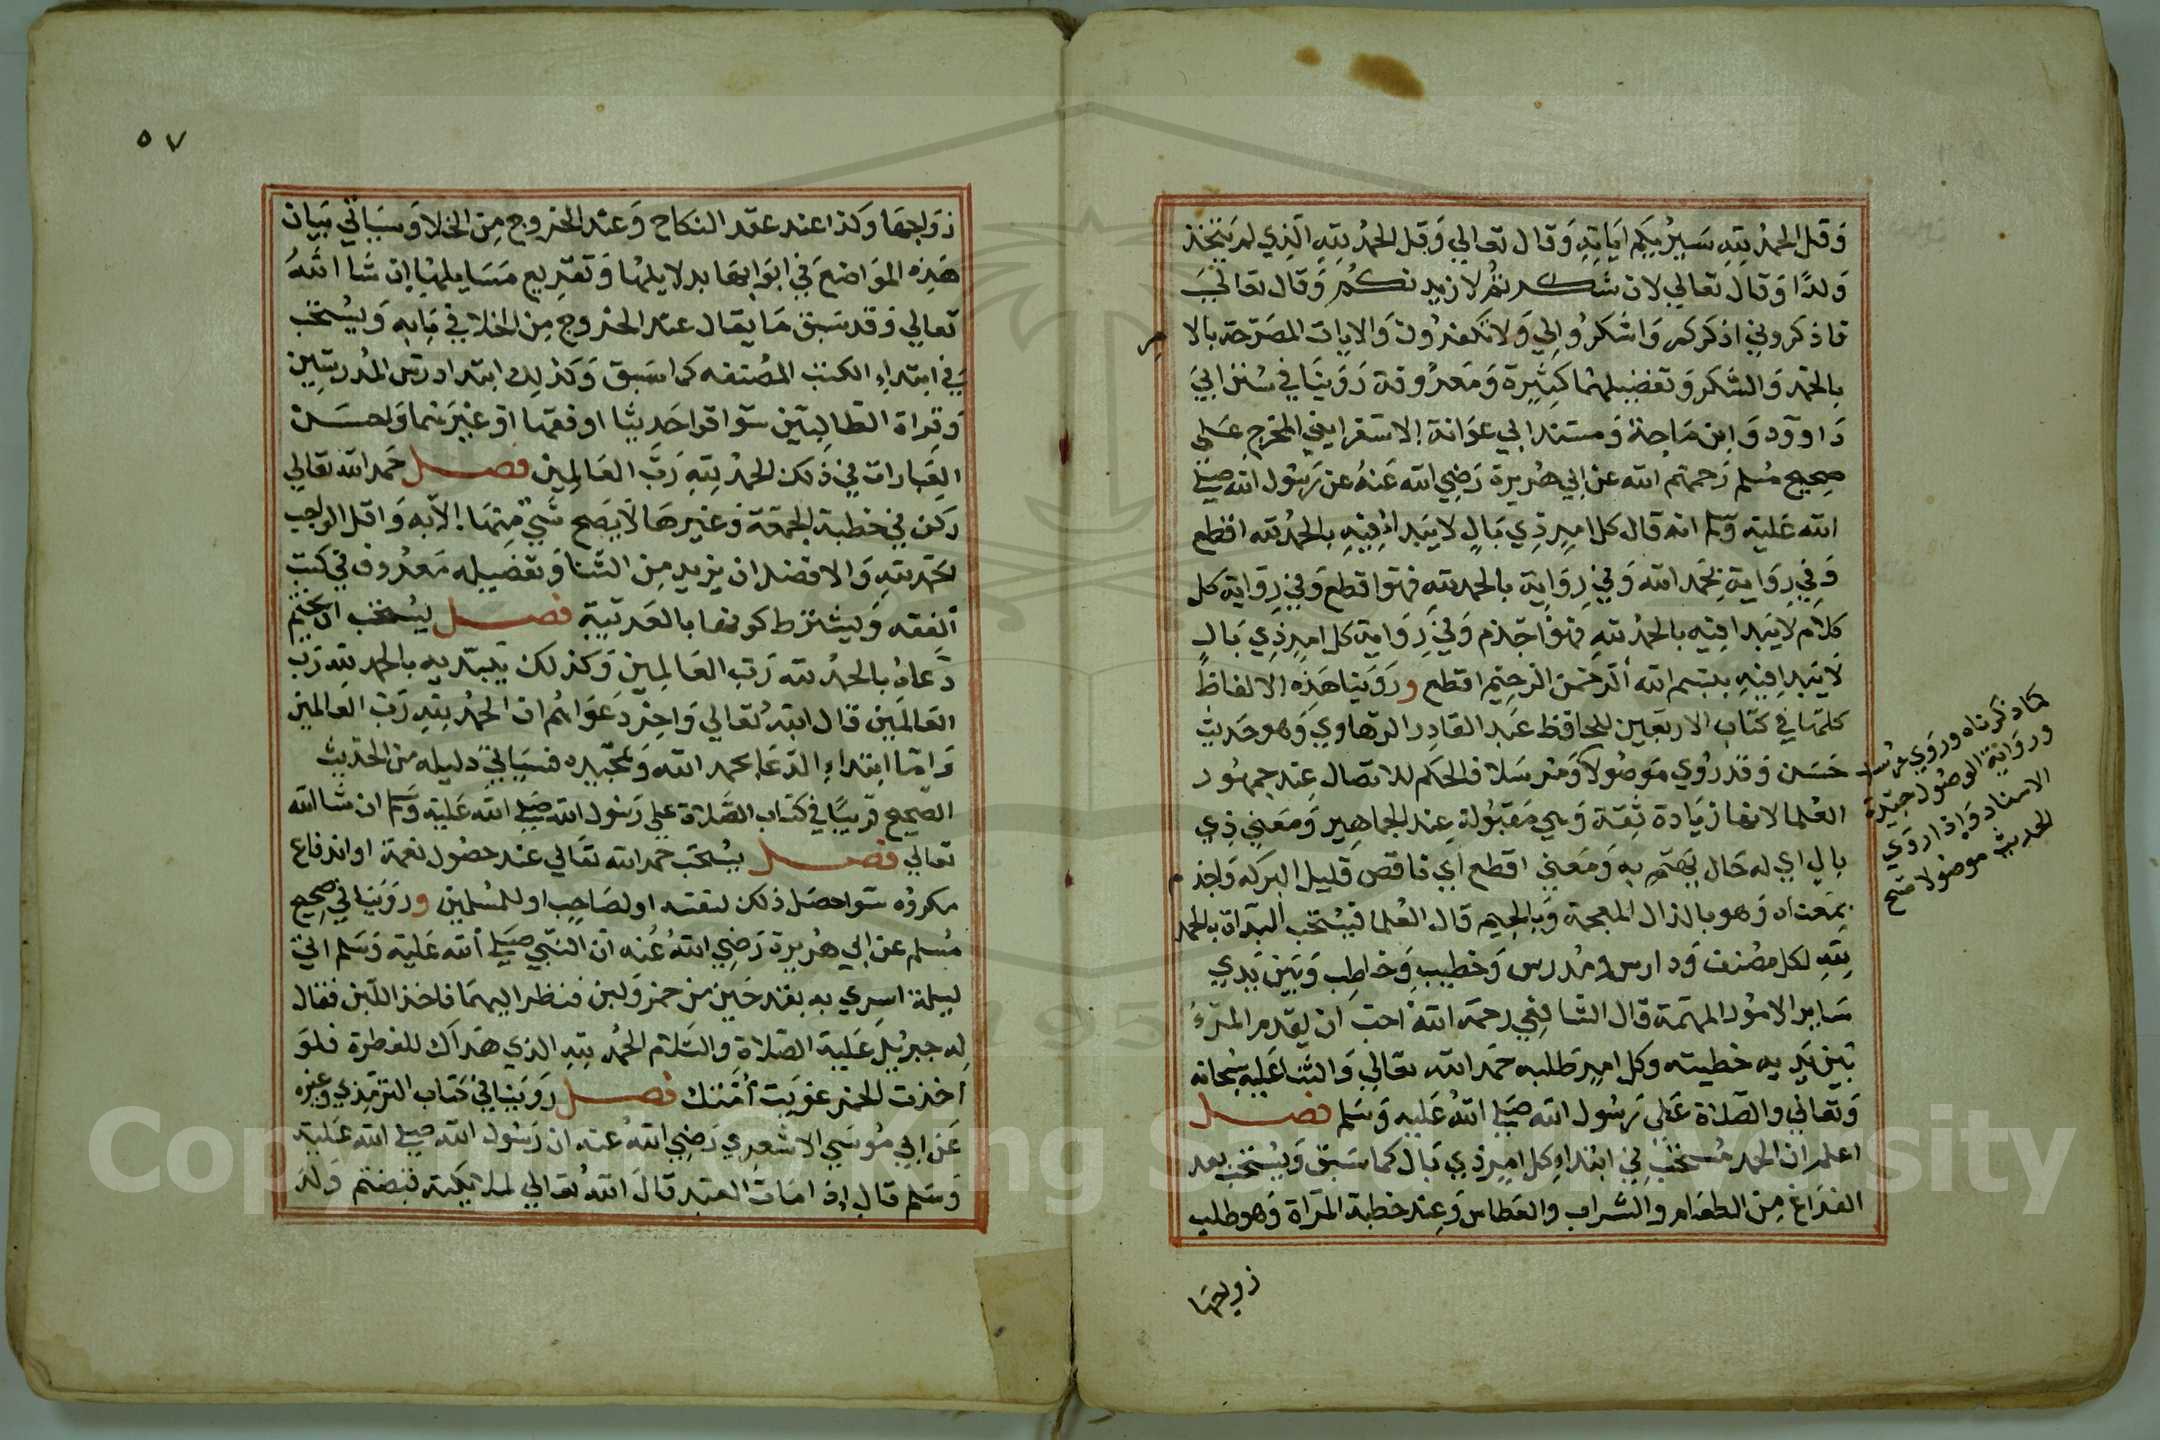 وَقل الحمد لله سَيريكم اياته وَقال تعالي وَقل الحمد لله الذي لم يتخذ
وَلدًا وَقال تعالي لان شكرتم لازيدنكم وَقال تعالي
فاذكروني اذكركم وَاشكرُوا لي وَلا تكفرُون وَالايات المصَرحة بالا
بالحمد وَالشكر وَتفضيلهمَا كثيرة وَمَعرُوفة رَوَينا في سُنن ابي
دَاوود وَابن مَاجة وَمسند ابي عوَانة الاسفرايني المخرج عَلي
صحيح مُسلم رَحمهم الله عن ابي هُريرة رَضِي الله عَنهُ عن رَسُول الله صلي
الله عَليه وسلم انه قال كل امِر ذِي بَالٍ لا يبدَا فيهِ بالحمد لله اقطع
وَفي رِوَاية بحَمد الله وَفي رِوَاية بالحمد للهِ فهوَ اقطع وَفي رِوَاية كل
كلام لا يَبدا فيه بالحمد للهِ فهوَ اجذم وَفي رِوَاية كل امِر ذِي بَالٍ
لا يَبدا فيهِ ببسم الله الرحمن الرحيم اقطع ورَوَينا هَذِه الالفاظ
كلهَا في كتاب الاربَعين للحافظ عَبد القادِر الرهاوي وَهو حَديث
حَسَن وَقد رُوي مَوصُولا وَمُرسَلا فالحكم للاتصال عِند جمهُور
العُلما لانهَا زيَادة ثِقة وَهي مَقبُولة عِند الجماهِير وَمَعني ذِي
بال اي له حَال يهتم به وَمَعني اقطع اي ناقص قليل البركه وَاجذم
بمَعناه وَهو بالذال المعجمة وَبالجيم قال العُلما فيُستحب البَداة بالحمد
للهِ لكل مصُنف وَدارس وَمُدرس وَخطيب وَخاطِب وَبَين يَدي
سَاير الامُور المهمَة قال الشافِعي رحمَه الله احب ان يقدم المَرءُ
بَين يَديه خطبته وكل امِر طلبه حَمد الله تعَالي وَالثنا عَليهِ سُبحانه
وَتعالي والصَلاة عَلي رَسُول الله صَلي اللهُ عَليه وَسَلم فصل
اعلم ان الحمد مُستحب في ابتداءِ كل امِر ذي بَال كما سَبق وَيُستحب بعد
الفرَاغ مِن الطعَام والشراب والعُطاس وَعِند خطبة المرَاة وَهو طلب
زواجها
كما ذكرناه وروي مُرسلا
ورواية الموصُول جيّدة
الاسناد وَاذا رَوي
الحديث موصُولا
٥٧
زوَاجهَا وَكذا عند عقد النكاح وَعند الخرُوج مِن الخلا وَسَيَاتي بَيان
هَذِه المَوَاضع في ابوَابهَا بدلايلهَا وَتفريع مَسَايلهَا ان شَا اللهُ
تعالي وَقد سَبق مَا يقال عند الخروج مِن الخلا في بَابه وَيُستحب
في ابتداءِ الكتب المصُنفه كما سَبق وَكذلِك ابتدا درس المُدرسِين
وَقراة الطالِبين سَوا قرا حَدِيثا او فقهًا اوغيرَهما وَاحسَن
العِبارات في ذَلك الحمد للهِ رَبّ العَالِمين فصل حَمد الله تعالي
ركن في خطبة الجمعَة وَغيرهَا لا يصَح شَيٌ منهَا الا به وَاقل الواجب
الحَمد للهِ وَالافضل ان يزيد مِن الثنا وَتفصِيله مَعرُوف في كتب
الفِقه وَيشترط كونها بالعَربية فصل يُستحب ان يختم
دُعاهُ بالحمد لله رَب العَالِمين وَكذلك يَبتديه بالحمد للهِ رَب
العَالمِين قال اللهُ تعالي وَاخِر دعوَاهُم ان الحمد للهِ رَب العَالمين
وَامّا ابتداءِ الدُعَا بحمد الله وَتمجيده فسَيَاتي دليله من الحديث
الصَحيح قريبًا في كتاب الصَّلاة علي رَسُول الله صَلي الله عَليه وَسلم ان شا الله
تعالي فصل يسُتحَب حَمد الله تعَالي عند حصُول نعمة او اندفاع
مكروُه سَوا حصَل ذلك لنفسه او لصَاحِب او للمُسلمين وروَينا في صحِيح
مُسلم عن ابي هُريرة رَضي اللهُ عَنه ان النبي صَلي الله عَليه وَسَلم اتي
ليلة اسري به بقدحَين من خمر وَلبن فنظر اليهمَا فاخذ اللبن فقال
له جبريل عَليهِ الصلاةِ والسَلام الحمد للهِ الذي هَدَاك للفطرة فلوَ
اخذت الخمر غوَت اُمتك فصل رَوَينا في كتاب الترمذي وَغيره
عَن ابي مُوسَي الاشعَري رَضِي اللهُ عنه ان رَسُول الله صَلي الله عَليه
وَسَلم قال اذا مَات العَبد قالَ اللهُ تعَالي لملايكته قبضتم وَلدَ